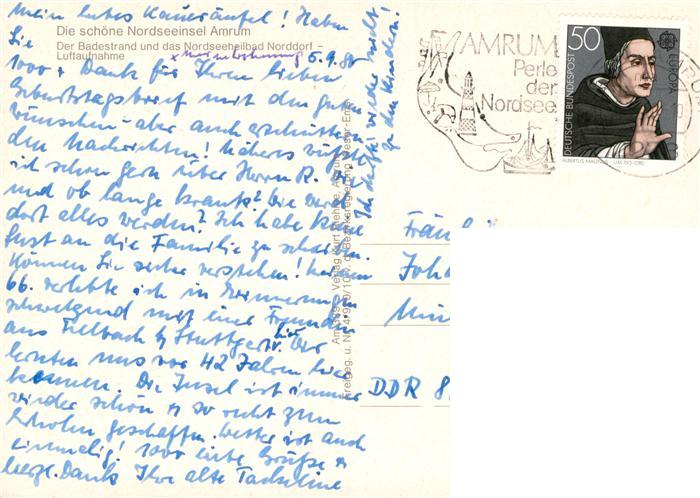 Mein liebes Kauzräufel! Haben
Die schöne Nordseeinsel Amrum
Der Badestrand und das Nordseeheilbad Norddorf -
Luftaufnahme
5.9.80
Sie
1000 x Dank für Ihren lieben
Geburtstagsbrief mit den guten
wünschen - aber auch erschüttern
den Nachrichten! Näheres wüßte
ich schon gern über Herrn R. wie
und ob lange krank? Wie werde
dort alles werden? Ich habe keine
Lust an die Familie zu schreiben.
Können Sie sicher verstehen! meinen
66. verlebte ich in Erinnerungen
schwelgend mit einer Freundin
aus Fellbach b/ Stuttgart. Wir
hier
lernten uns vor 42 Jahren hier
kennen. Die Insel ist immer
wieder schön & so recht zum
Erholen geschaffen. Wetter ist auch
einmalig! 1000 liebe Grüße &
herzl. Dank Ihre alte
Ich durfte wieder nicht
zu den Kindern!
AMRUM
Perle
der
Nordsee
50
DEUTSCHE BUNDESPOST
EUROPA
ALBERTUS MAGNUS · UM 1193-1280
Fräul
Joha
DDR 8